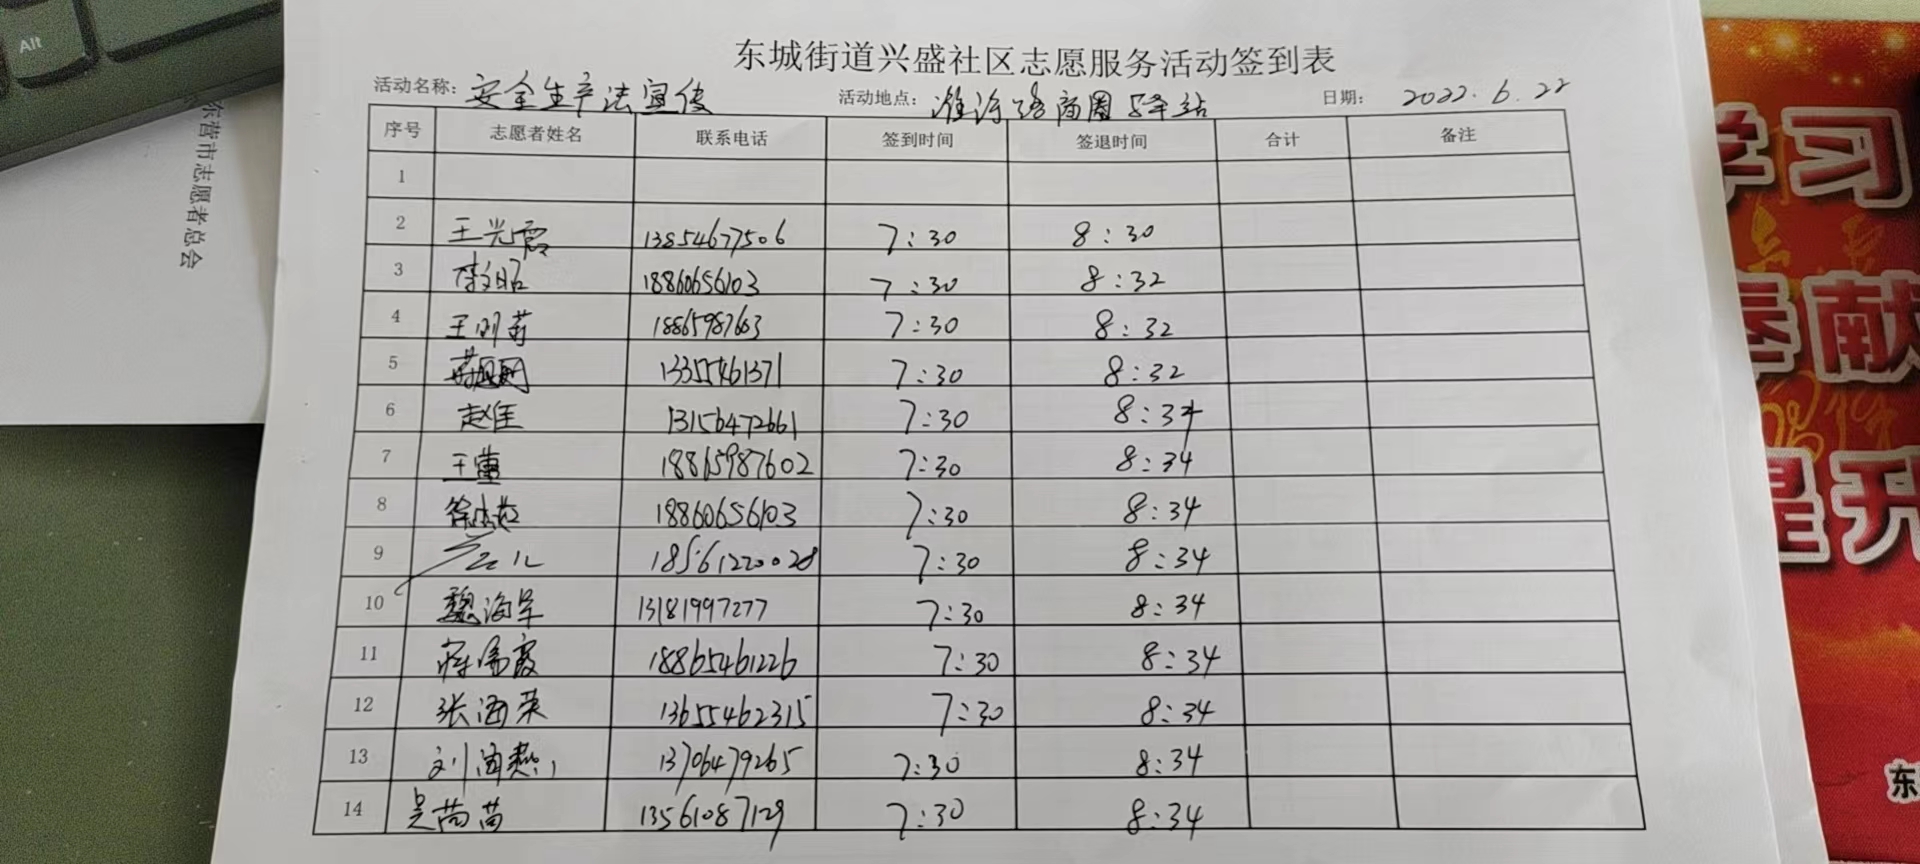 Alt
东营市志愿者总会
东城街道兴盛社区志愿服务活动签到表
活动名称: 安全生产法宣传 活动地点: 淮河路商圈驿站 日期: 2022.6.22
序号 志愿者姓名 联系电话 签到时间 签退时间 合计 备注
1
2 王光霞 13854677506 7:30 8:30
3 李文昭 18860656103 7:30 8:32
4 王明 18865987603 7:30 8:32
5 13355461371 7:30 8:32
6 赵佳 13156472661 7:30 8:34
7 王 18865987602 7:30 8:34
8 徐 18860656103 7:30 8:34
9 18561220028 7:30 8:34
10 魏海军 13181997277 7:30 8:34
11 蒋 霞 18865461226 7:30 8:34
12 张海荣 13655462315 7:30 8:34
13 刘海燕 13706479265 7:30 8:34
14 吴苗苗 13561087129 7:30 8:34
学习
奉献
星升
东